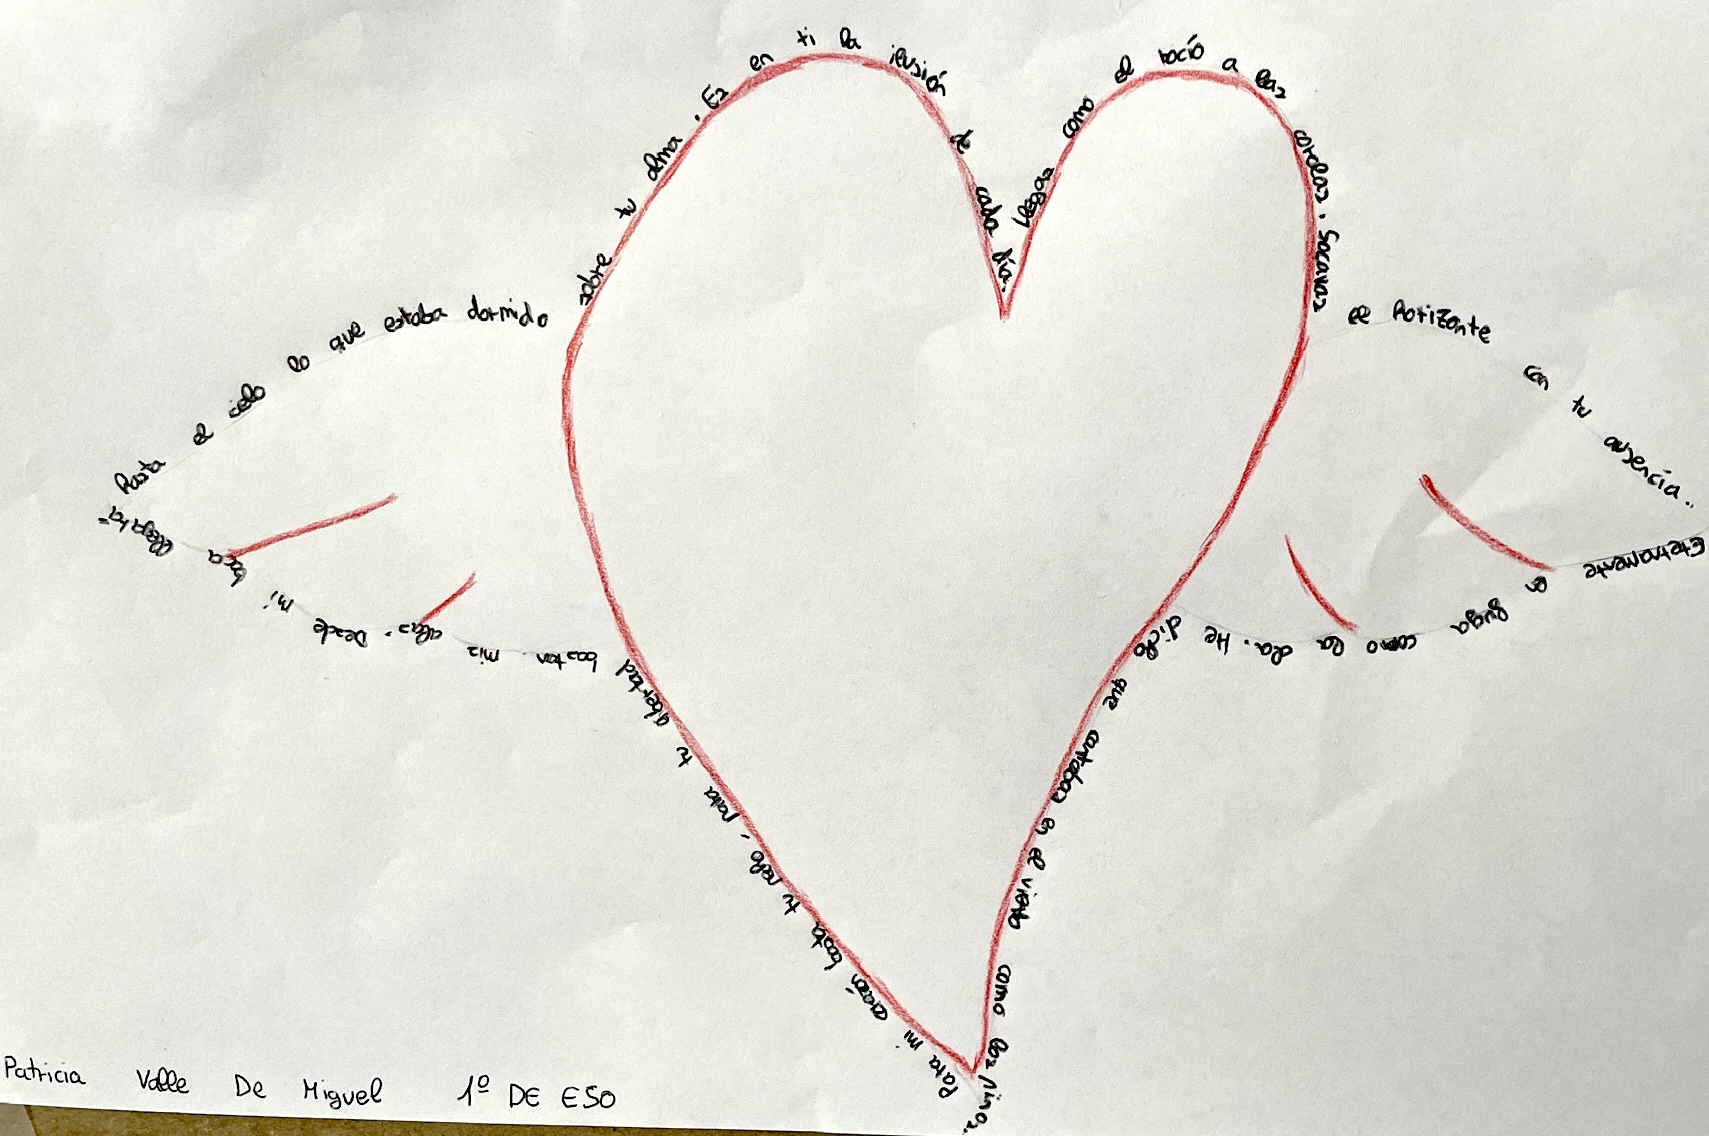 Para mi corazón basta tu pecho, para tu libertad
bastan mis alas. Desde mi boca llegará
hasta el cielo lo que estaba dormido
sobre tu alma. Es en ti la ilusión de cada día.
Llegas como el rocío a las corolas. Socavas
el horizonte con tu ausencia..
Eternamente en fuga como la ola. He dicho
que cantabas en el viento como los pinos.
Patricia Valle De Miguel 1º DE ESO